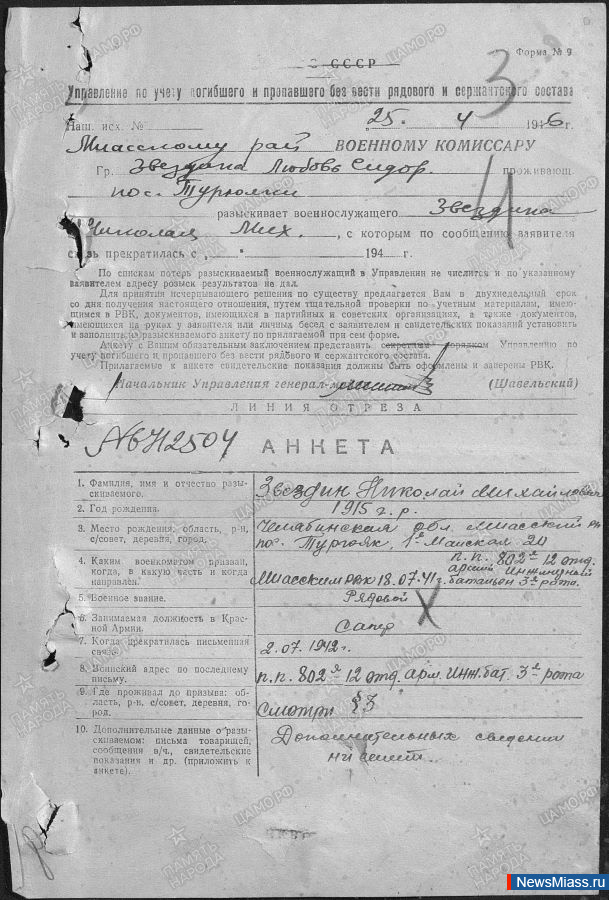 СССР
Форма № 9
Управление по учету погибшего и пропавшего без вести рядового и сержантского состава
Наш. исх. № 25. 4 1946г.
Миасскому рай ВОЕННОМУ КОМИССАРУ
Гр. Звездина Любовь Сидор. проживающ.
пос.
разыскивает военнослужащего Звездина
Николая Мих. , с которым по сообщению заявителя
связь прекратилась с 194 г.
По спискам потерь разыскиваемый военнослужащий в Управлении не числится и по указанному
заявителем адресу розыск результатов не дал.
Для принятия исчерпывающего решения по существу предлагается Вам в двухнедельный срок
со дня получения настоящего отношения, путем тщательной проверки по учетным материалам, имею-
щимся в РВК, документов, имеющихся в партийных и советских организациях, а также документов,
имеющихся на руках у заявителя или личных бесед с заявителем и свидетельских показаний установить
и заполнить о разыскиваемом анкету по прилагаемой при сем форме.
Анкету с Вашим обязательным заключением представить секретным порядком Управлению по
учету погибшего и пропавшего без вести рядового и сержантского состава.
Прилагаемые к анкете свидетельские показания должны быть оформлены и заверены РВК.
Начальник Управления генерал- (Шавельский)
ЛИНИЯ ОТРЕЗА
№ Н2504 АНКЕТА
1. Фамилия, имя и отчество разы-
скиваемого.
Звездин Николай Михайлович
2. Год рождения.
1915 г. р.
3. Место рождения, область, р-н,
с/совет, деревня, город.
Челябинская обл. Миасский рн
пос. Тургояк, 1я Майская 20
4. Каким военкоматом призван,
когда, в какую часть и когда
направлен.
п. п. 802я 12 отд.
армий инженерный
Миасским рвк 18.07.41г. батальон 3я рота.
5. Военное звание.
Рядовой
6. Занимаемая должность в Крас-
ной Армии.
Сапер
7. Когда прекратилась письменная
связь.
2.07.1942г.
8. Воинский адрес по последнему
письму.
п.п. 802я 12 отд. арм. инж. бат. 3я рота
9. Где проживал до призыва: об-
ласть, р-н, с/совет, деревня, го-
род.
Смотри § 3
10. Дополнительные данные о разы-
скиваемом: письма товарищей,
сообщения в/ч., свидетельские
показания и др. (приложить к
анкете).
Дополнительных сведений
не имеет.
ПАМЯТЬ НАРОДА
ЦАМО.РФ
NewsMiass.ru